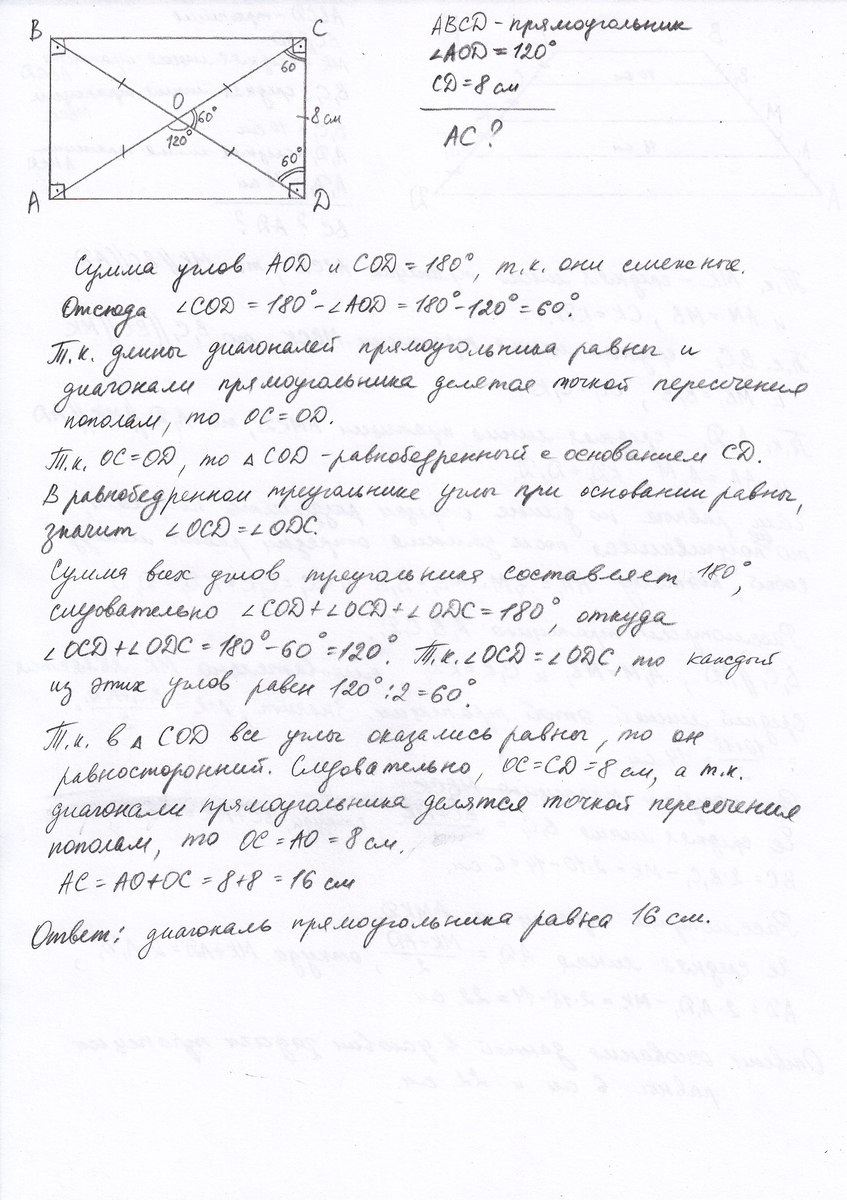 B
C
60
O
60°
8 см
120°
60°
A
D
ABCD - прямоугольник
∠AOD = 120°
CD = 8 см
AC ?
Сумма углов AOD и COD = 180°, т.к. они смежные.
Отсюда ∠COD = 180° - ∠AOD = 180° - 120° = 60°.
Т.к. длины диагоналей прямоугольника равны и
диагонали прямоугольника делятся точкой пересечения
пополам, то OC = OD.
Т.к. OC = OD, то △ COD - равнобедренный с основанием CD.
В равнобедренном треугольнике углы при основании равны,
значит ∠OCD = ∠ODC.
Сумма всех углов треугольника составляет 180°,
следовательно ∠COD + ∠OCD + ∠ODC = 180°, откуда
∠OCD + ∠ODC = 180° - 60° = 120°. Т.к. ∠OCD = ∠ODC, то каждый
из этих углов равен 120° : 2 = 60°.
Т.к. в △ COD все углы оказались равны, то он
равносторонний. Следовательно, OC = CD = 8 см, а т.к.
диагонали прямоугольника делятся точкой пересечения
пополам, то OC = AO = 8 см.
AC = AO + OC = 8 + 8 = 16 см
Ответ: диагональ прямоугольника равна 16 см.